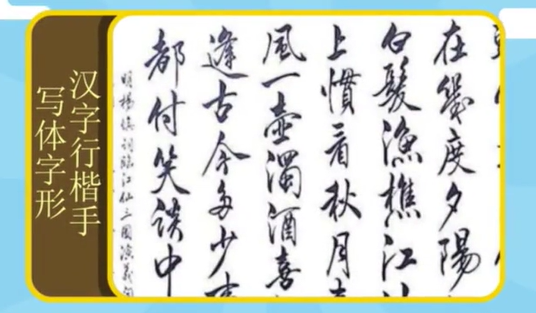 汉字行楷手
写体字形
在幾度夕陽
白髮漁樵江
上慣看秋月
風一壺濁酒喜
逢古今多少
都付笑談中
明楊慎詞臨江仙三國演義